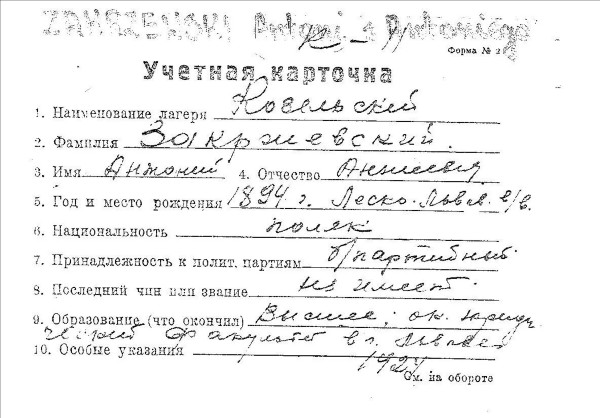 ZAKRZEWSKI Antoni s Antoniego
Форма № 2
Учетная карточка
1. Наименование лагеря Козельский
2. Фамилия Закржевский
3. Имя Антоний 4. Отчество
5. Год и место рождения 1894 г. Леско-Львов. в/в.
6. Национальность поляк
7. Принадлежность к полит. партиям б/партийный
8. Последний чин или звание не имеет
9. Образование (что окончил) Высшее; ок. юриди-
ческий факультет в г. Львове
10. Особые указания 1927
См. на обороте